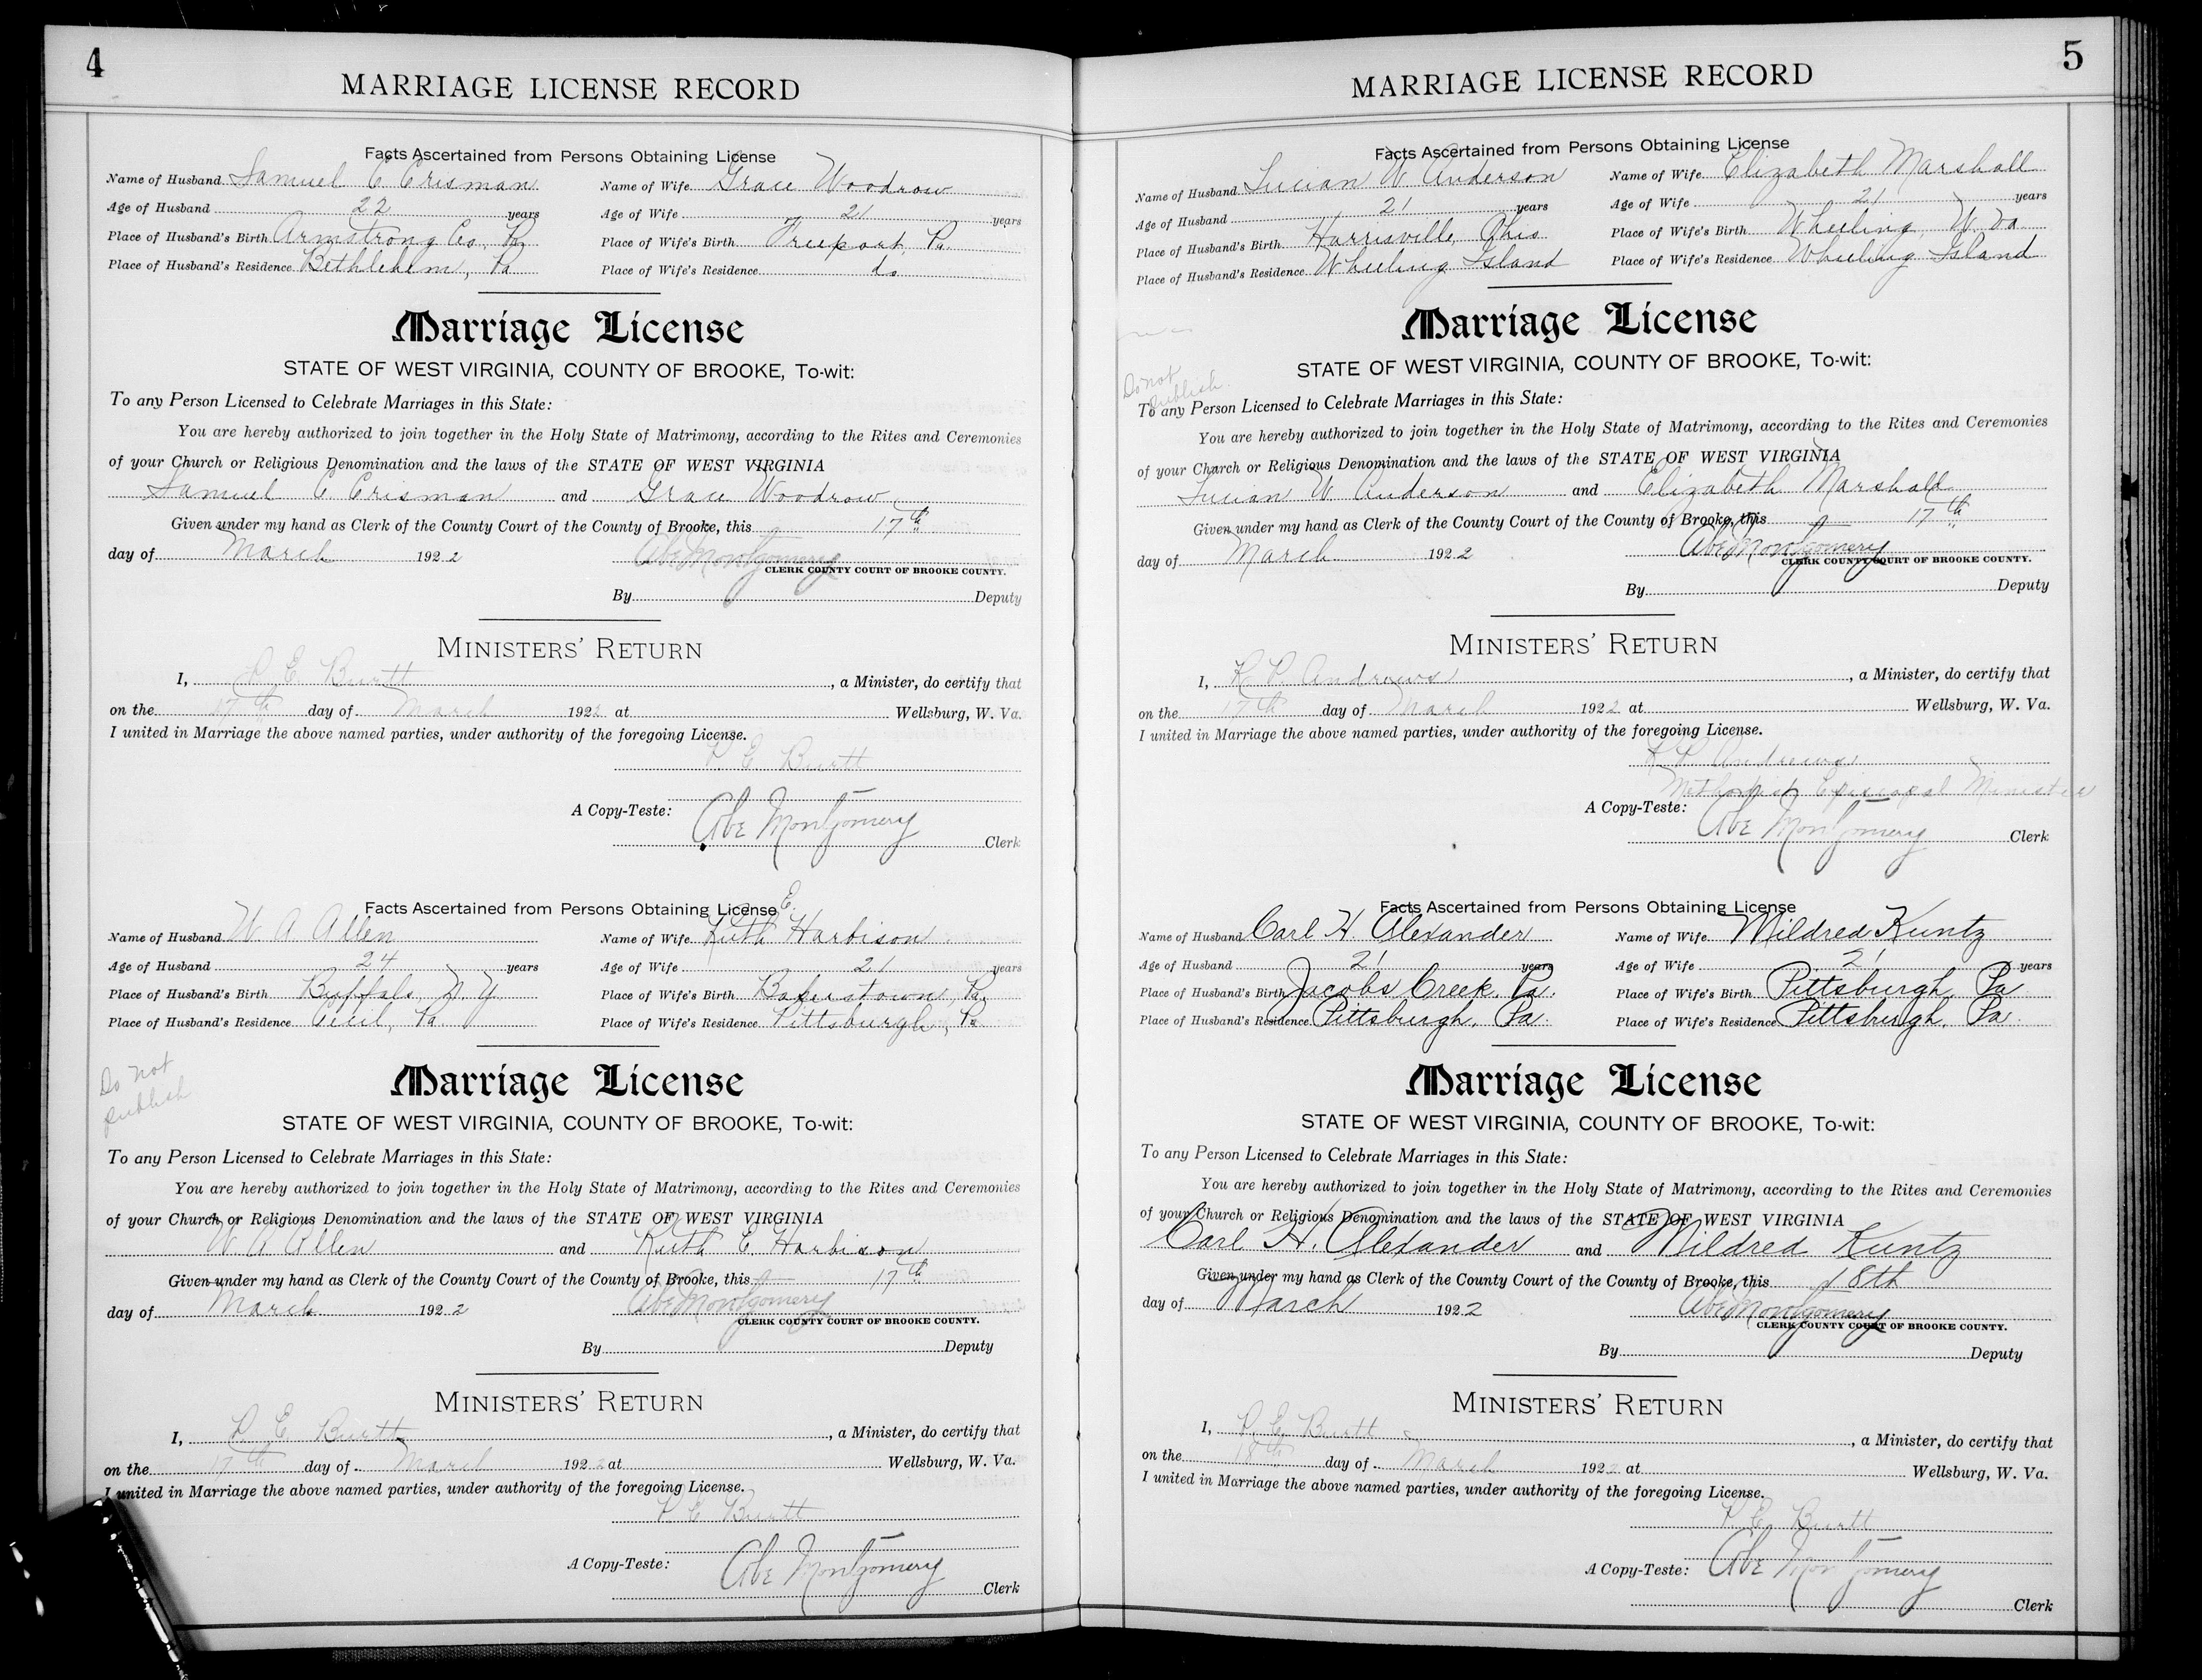 4
MARRIAGE LICENSE RECORD
Facts Ascertained from Persons Obtaining License
Name of Husband Samuel C Crisman Name of Wife Grace Woodrow
Age of Husband 22 years Age of Wife 21 years
Place of Husband's Birth Armstrong Co, Pa Place of Wife's Birth Freeport, Pa.
Place of Husband's Residence Bethlehem, Pa Place of Wife's Residence do
Marriage License
STATE OF WEST VIRGINIA, COUNTY OF BROOKE, To-wit:
To any Person Licensed to Celebrate Marriages in this State:
You are hereby authorized to join together in the Holy State of Matrimony, according to the Rites and Ceremonies
of your Church or Religious Denomination and the laws of the STATE OF WEST VIRGINIA
Samuel C Crisman and Grace Woodrow
Given under my hand as Clerk of the County Court of the County of Brooke, this 17th
day of March 1922 Abe Montgomery
CLERK COUNTY COURT OF BROOKE COUNTY.
By Deputy
MINISTERS' RETURN
I, P. E. Burtt, a Minister, do certify that
on the 17th day of March 1922 at Wellsburg, W. Va.
I united in Marriage the above named parties, under authority of the foregoing License.
P. E. Burtt
A Copy-Teste: Abe Montgomery
Clerk
Facts Ascertained from Persons Obtaining License
Name of Husband W. A Allen Name of Wife Ruth E. Harbison
Age of Husband 24 years Age of Wife 21 years
Place of Husband's Birth Buffalo, N. Y. Place of Wife's Birth Bakerstown, Pa.
Place of Husband's Residence Cecil, Pa. Place of Wife's Residence Pittsburgh, Pa
Do not
publish
Marriage License
STATE OF WEST VIRGINIA, COUNTY OF BROOKE, To-wit:
To any Person Licensed to Celebrate Marriages in this State:
You are hereby authorized to join together in the Holy State of Matrimony, according to the Rites and Ceremonies
of your Church or Religious Denomination and the laws of the STATE OF WEST VIRGINIA
W. A Allen and Ruth E Harbison
Given under my hand as Clerk of the County Court of the County of Brooke, this 17th
day of March 1922 Abe Montgomery
CLERK COUNTY COURT OF BROOKE COUNTY.
By Deputy
MINISTERS' RETURN
I, P. E. Burtt, a Minister, do certify that
on the 17th day of March 1922 at Wellsburg, W. Va.
I united in Marriage the above named parties, under authority of the foregoing License.
P. E. Burtt
A Copy-Teste: Abe Montgomery
Clerk
5
MARRIAGE LICENSE RECORD
Facts Ascertained from Persons Obtaining License
Name of Husband Lucian W. Anderson Name of Wife Elizabeth Marshall
Age of Husband 21 years Age of Wife 21 years
Place of Husband's Birth Harrisville, Ohio Place of Wife's Birth Wheeling, W. Va.
Place of Husband's Residence Wheeling Island Place of Wife's Residence Wheeling Island
Marriage License
STATE OF WEST VIRGINIA, COUNTY OF BROOKE, To-wit:
Do not
publish.
To any Person Licensed to Celebrate Marriages in this State:
You are hereby authorized to join together in the Holy State of Matrimony, according to the Rites and Ceremonies
of your Church or Religious Denomination and the laws of the STATE OF WEST VIRGINIA
Lucian W. Anderson and Elizabeth Marshall
Given under my hand as Clerk of the County Court of the County of Brooke, this 17th
day of March 1922 Abe Montgomery
CLERK COUNTY COURT OF BROOKE COUNTY.
By Deputy
MINISTERS' RETURN
I, Andrews, a Minister, do certify that
on the 17th day of March 1922 at Wellsburg, W. Va.
I united in Marriage the above named parties, under authority of the foregoing License.
Andrews
Methodist Episcopal Minister
A Copy-Teste: Abe Montgomery
Clerk
Facts Ascertained from Persons Obtaining License
Name of Husband Carl H. Alexander Name of Wife Mildred Kuntz
Age of Husband 21 years Age of Wife 21 years
Place of Husband's Birth Jacobs Creek, Pa. Place of Wife's Birth Pittsburgh, Pa
Place of Husband's Residence Pittsburgh, Pa. Place of Wife's Residence Pittsburgh, Pa.
Marriage License
STATE OF WEST VIRGINIA, COUNTY OF BROOKE, To-wit:
To any Person Licensed to Celebrate Marriages in this State:
You are hereby authorized to join together in the Holy State of Matrimony, according to the Rites and Ceremonies
of your Church or Religious Denomination and the laws of the STATE OF WEST VIRGINIA
Carl H. Alexander and Mildred Kuntz
Given under my hand as Clerk of the County Court of the County of Brooke, this 18th
day of March 1922 Abe Montgomery
CLERK COUNTY COURT OF BROOKE COUNTY.
By Deputy
MINISTERS' RETURN
I, P. E. Burtt, a Minister, do certify that
on the 18th day of March 1922 at Wellsburg, W. Va.
I united in Marriage the above named parties, under authority of the foregoing License.
P. E. Burtt
A Copy-Teste: Abe Montgomery
Clerk